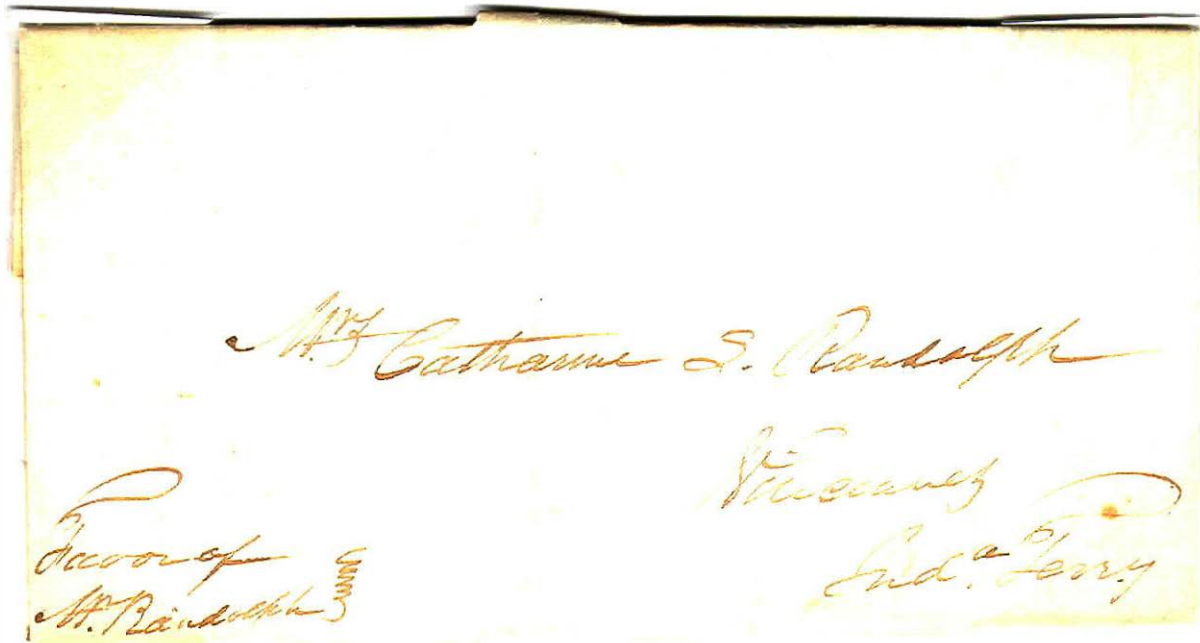 Mrs Catharine S. Randolph
Vincennes
Inda. Terry
Favor of
Mr. Randolph